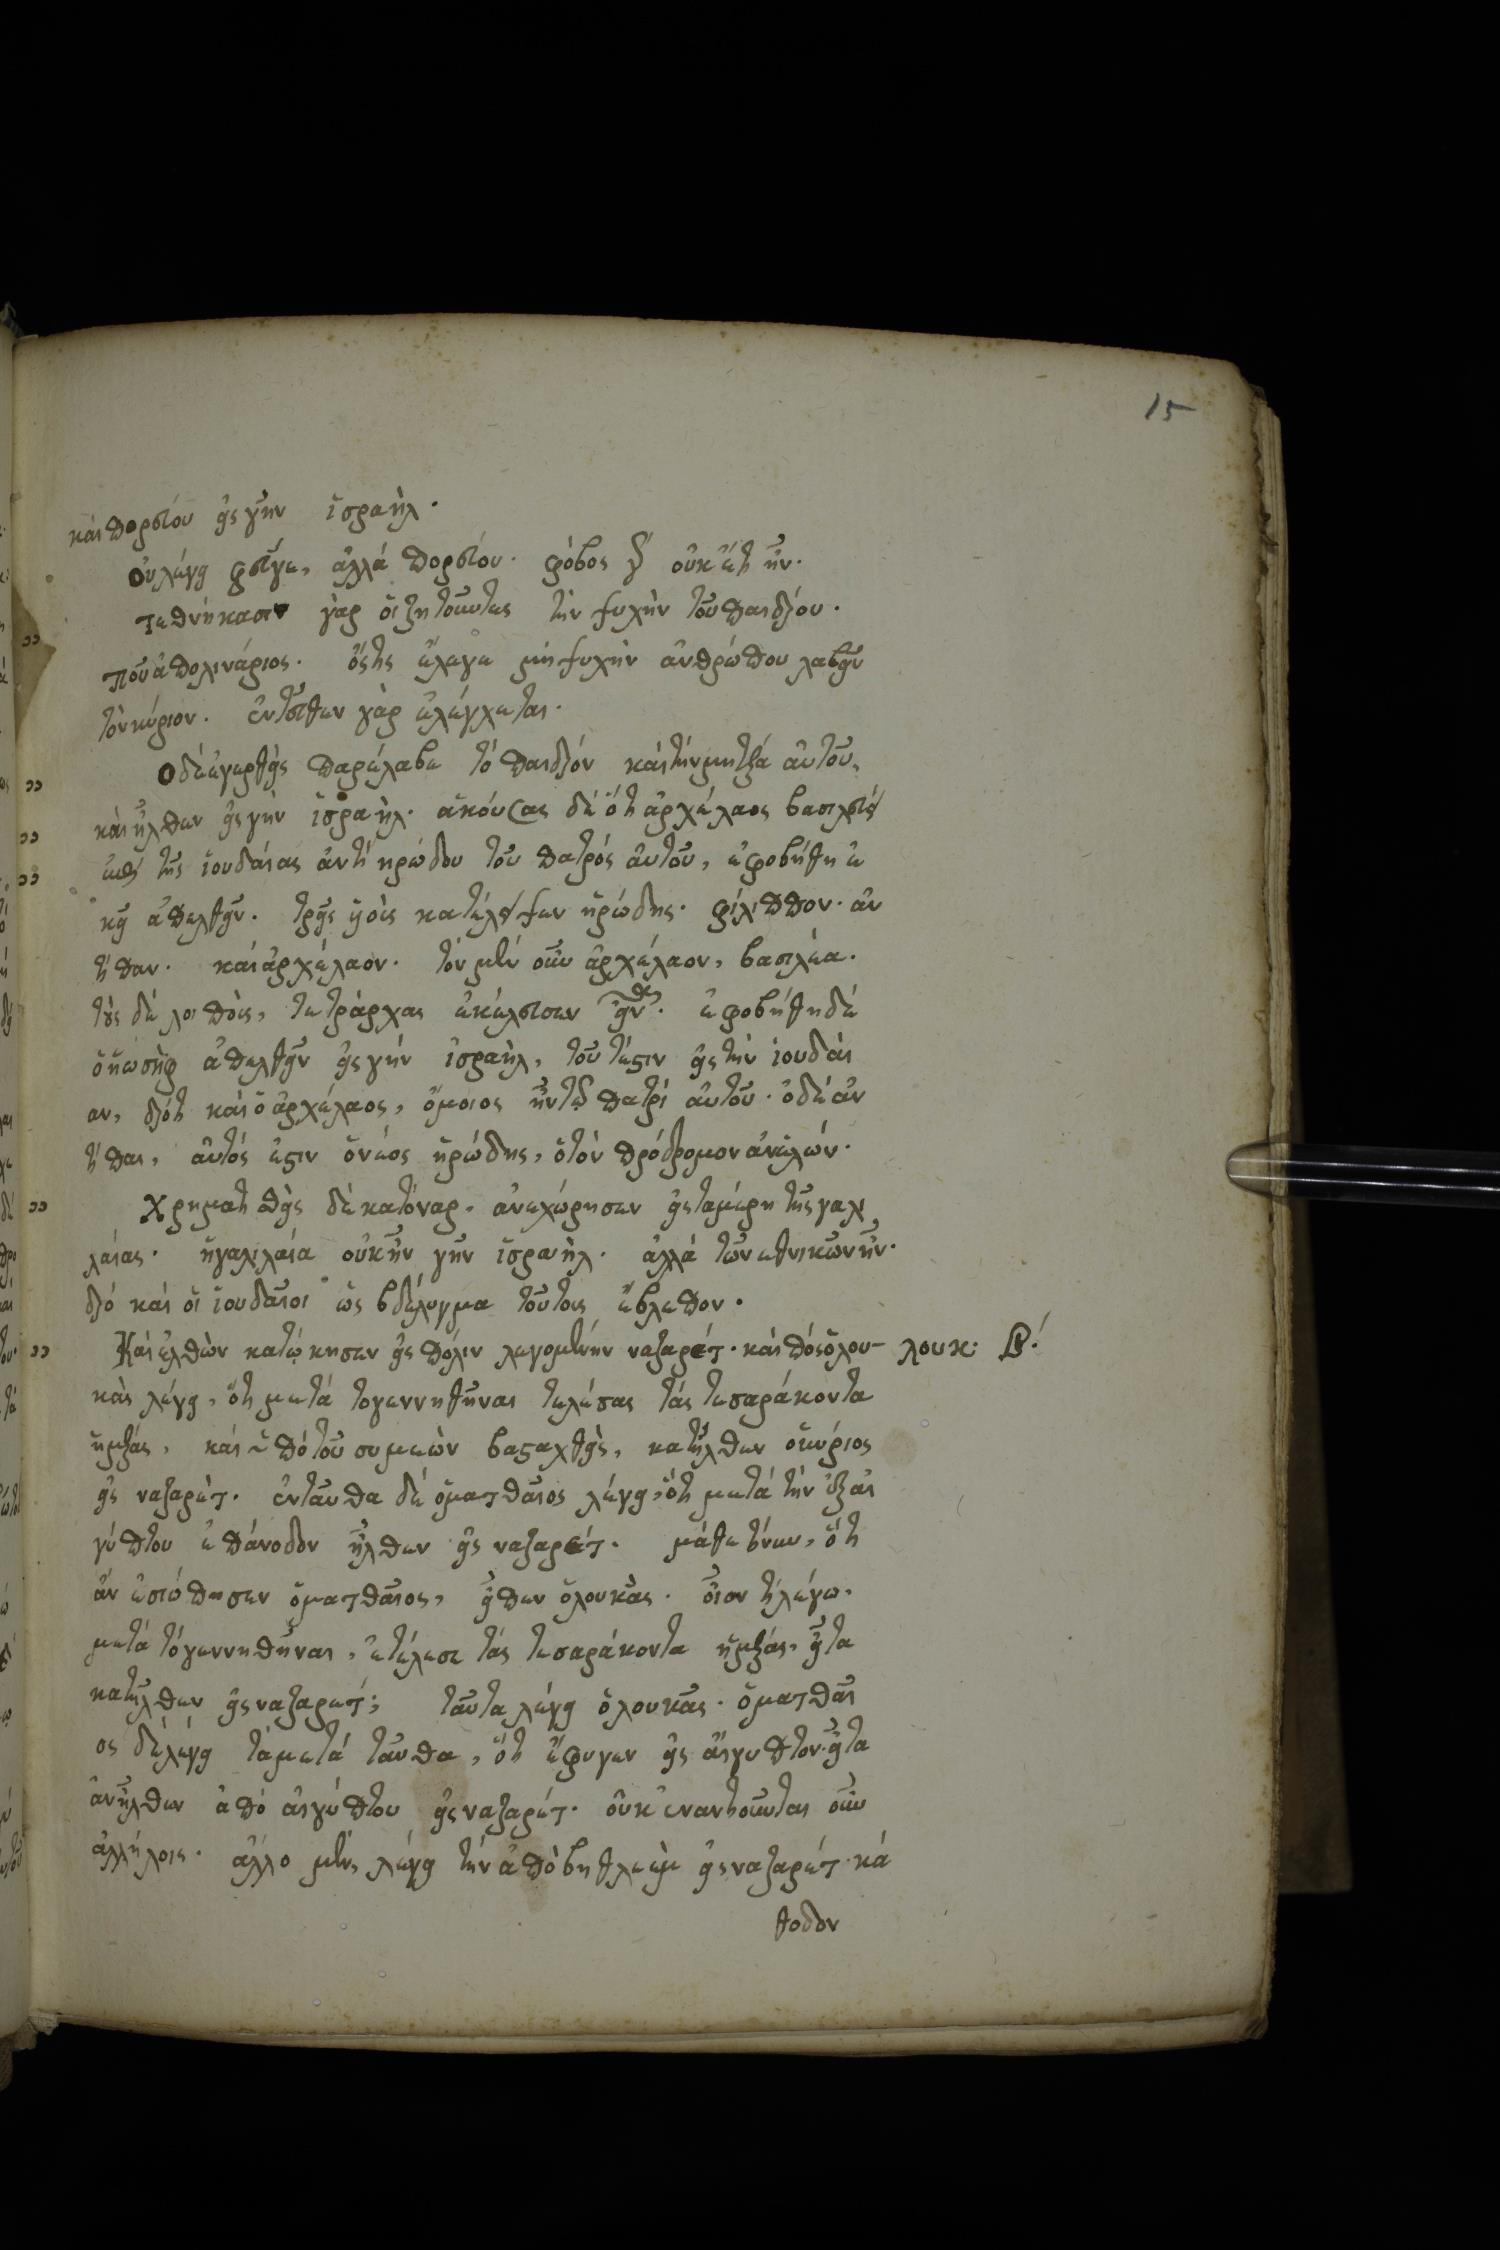 15
καὶ πορεύου εἰς γῆν ἰσραήλ.
Οὐ λέγει φεῦγε, ἀλλὰ πορεύου. φόβος γὰρ οὐκ ἔτι ἦν.
τεθνήκασιν γὰρ οἱ ζητοῦντες τὴν ψυχὴν τοῦ παιδίου.
ποῦ ἀπολινάριος. ὅστις ἔλεγε μὴ ψυχὴν ἀνθρώπου λαβεῖν
τὸν κύριον. ἐντεῦθεν γὰρ ἐλέγχεται.
Ὁ δὲ ἐγερθεὶς παρέλαβε τὸ παιδίον καὶ τὴν μητέρα αὐτοῦ,
καὶ ἦλθεν εἰς γῆν ἰσραήλ. ἀκούσας δὲ ὅτι ἀρχέλαος βασιλεύει
ἐπὶ τῆς ἰουδαίας ἀντὶ ἡρώδου τοῦ πατρὸς αὐτοῦ, ἐφοβήθη ἐ
κεῖ ἀπελθεῖν. τρεῖς υἱοὺς κατέλειψεν ἡρώδης. φίλιππον. ἀν
τίπαν. καὶ ἀρχέλαον. τὸν μὲν οὖν ἀρχέλαον, βασιλέα.
τοὺς δὲ λοιποὺς, τετράρχας ἐκέλευσεν εἶναι. ἐφοβήθη δὲ
ὁ ἰωσὴφ ἀπελθεῖν εἰς γῆν ἰσραήλ, τουτέστιν εἰς τὴν ἰουδαί
αν, διότι καὶ ὁ ἀρχέλαος, ὅμοιος ἦν τῷ πατρὶ αὐτοῦ. ὁ δὲ ἀν
τίπας, αὐτός ἐστιν ὁ νέος ἡρώδης, ὁ τὸν πρόδρομον ἀνελών.
Χρηματισθεὶς δὲ κατόναρ, ἀνεχώρησεν εἰς τὰ μέρη τῆς γαλι
λαίας. ἡ γαλιλαία οὐκ ἦν γῆν ἰσραήλ. ἀλλὰ τῶν ἐθνικῶν ἦν.
διὸ καὶ οἱ ἰουδαῖοι ὡς βδέλυγμα τούτους ἔβλεπον.
Καὶ ἐλθὼν κατῴκησεν εἰς πόλιν λεγομένην ναζαρέτ. καὶ πῶς ὁ λου- λουκ. β΄
κᾶς λέγει, ὅτι μετὰ τὸ γεννηθῆναι τελέσας τὰς τεσσαράκοντα
ἡμέρας, καὶ ὑπὸ τοῦ συμεὼν βασταχθεὶς, κατῆλθεν ὁ κύριος
εἰς ναζαρέτ. ἐνταῦθα δὲ ὁ ματθαῖος λέγει, ὅτι μετὰ τὴν ἐξ αἰ
γύπτου ἐπάνοδον ἦλθεν εἰς ναζαρέτ. μάθε τοίνυν, ὅτι
ἃν ἐσιώπησεν ὁ ματθαῖος, εἶπεν ὁ λουκᾶς. οἷον τί λέγω.
μετὰ τὸ γεννηθῆναι, ἐτέλεσε τὰς τεσσαράκοντα ἡμέρας, εἶτα
κατῆλθεν εἰς ναζαρέτ; ταῦτα λέγει ὁ λουκᾶς. ὁ ματθαῖ
ος δὲ λέγει τὰ μετὰ ταῦθα, ὅτι ἔφυγεν εἰς αἴγυπτον. εἶτα
ἀνῆλθεν ἀπὸ αἰγύπτου εἰς ναζαρέτ. οὐκ ἐναντιοῦνται οὖν
ἀλλήλοις. ἀλλ' ὁ μὲν, λέγει τὴν ἀπὸ βηθλεὲμ εἰς ναζαρὲτ κά
θοδον